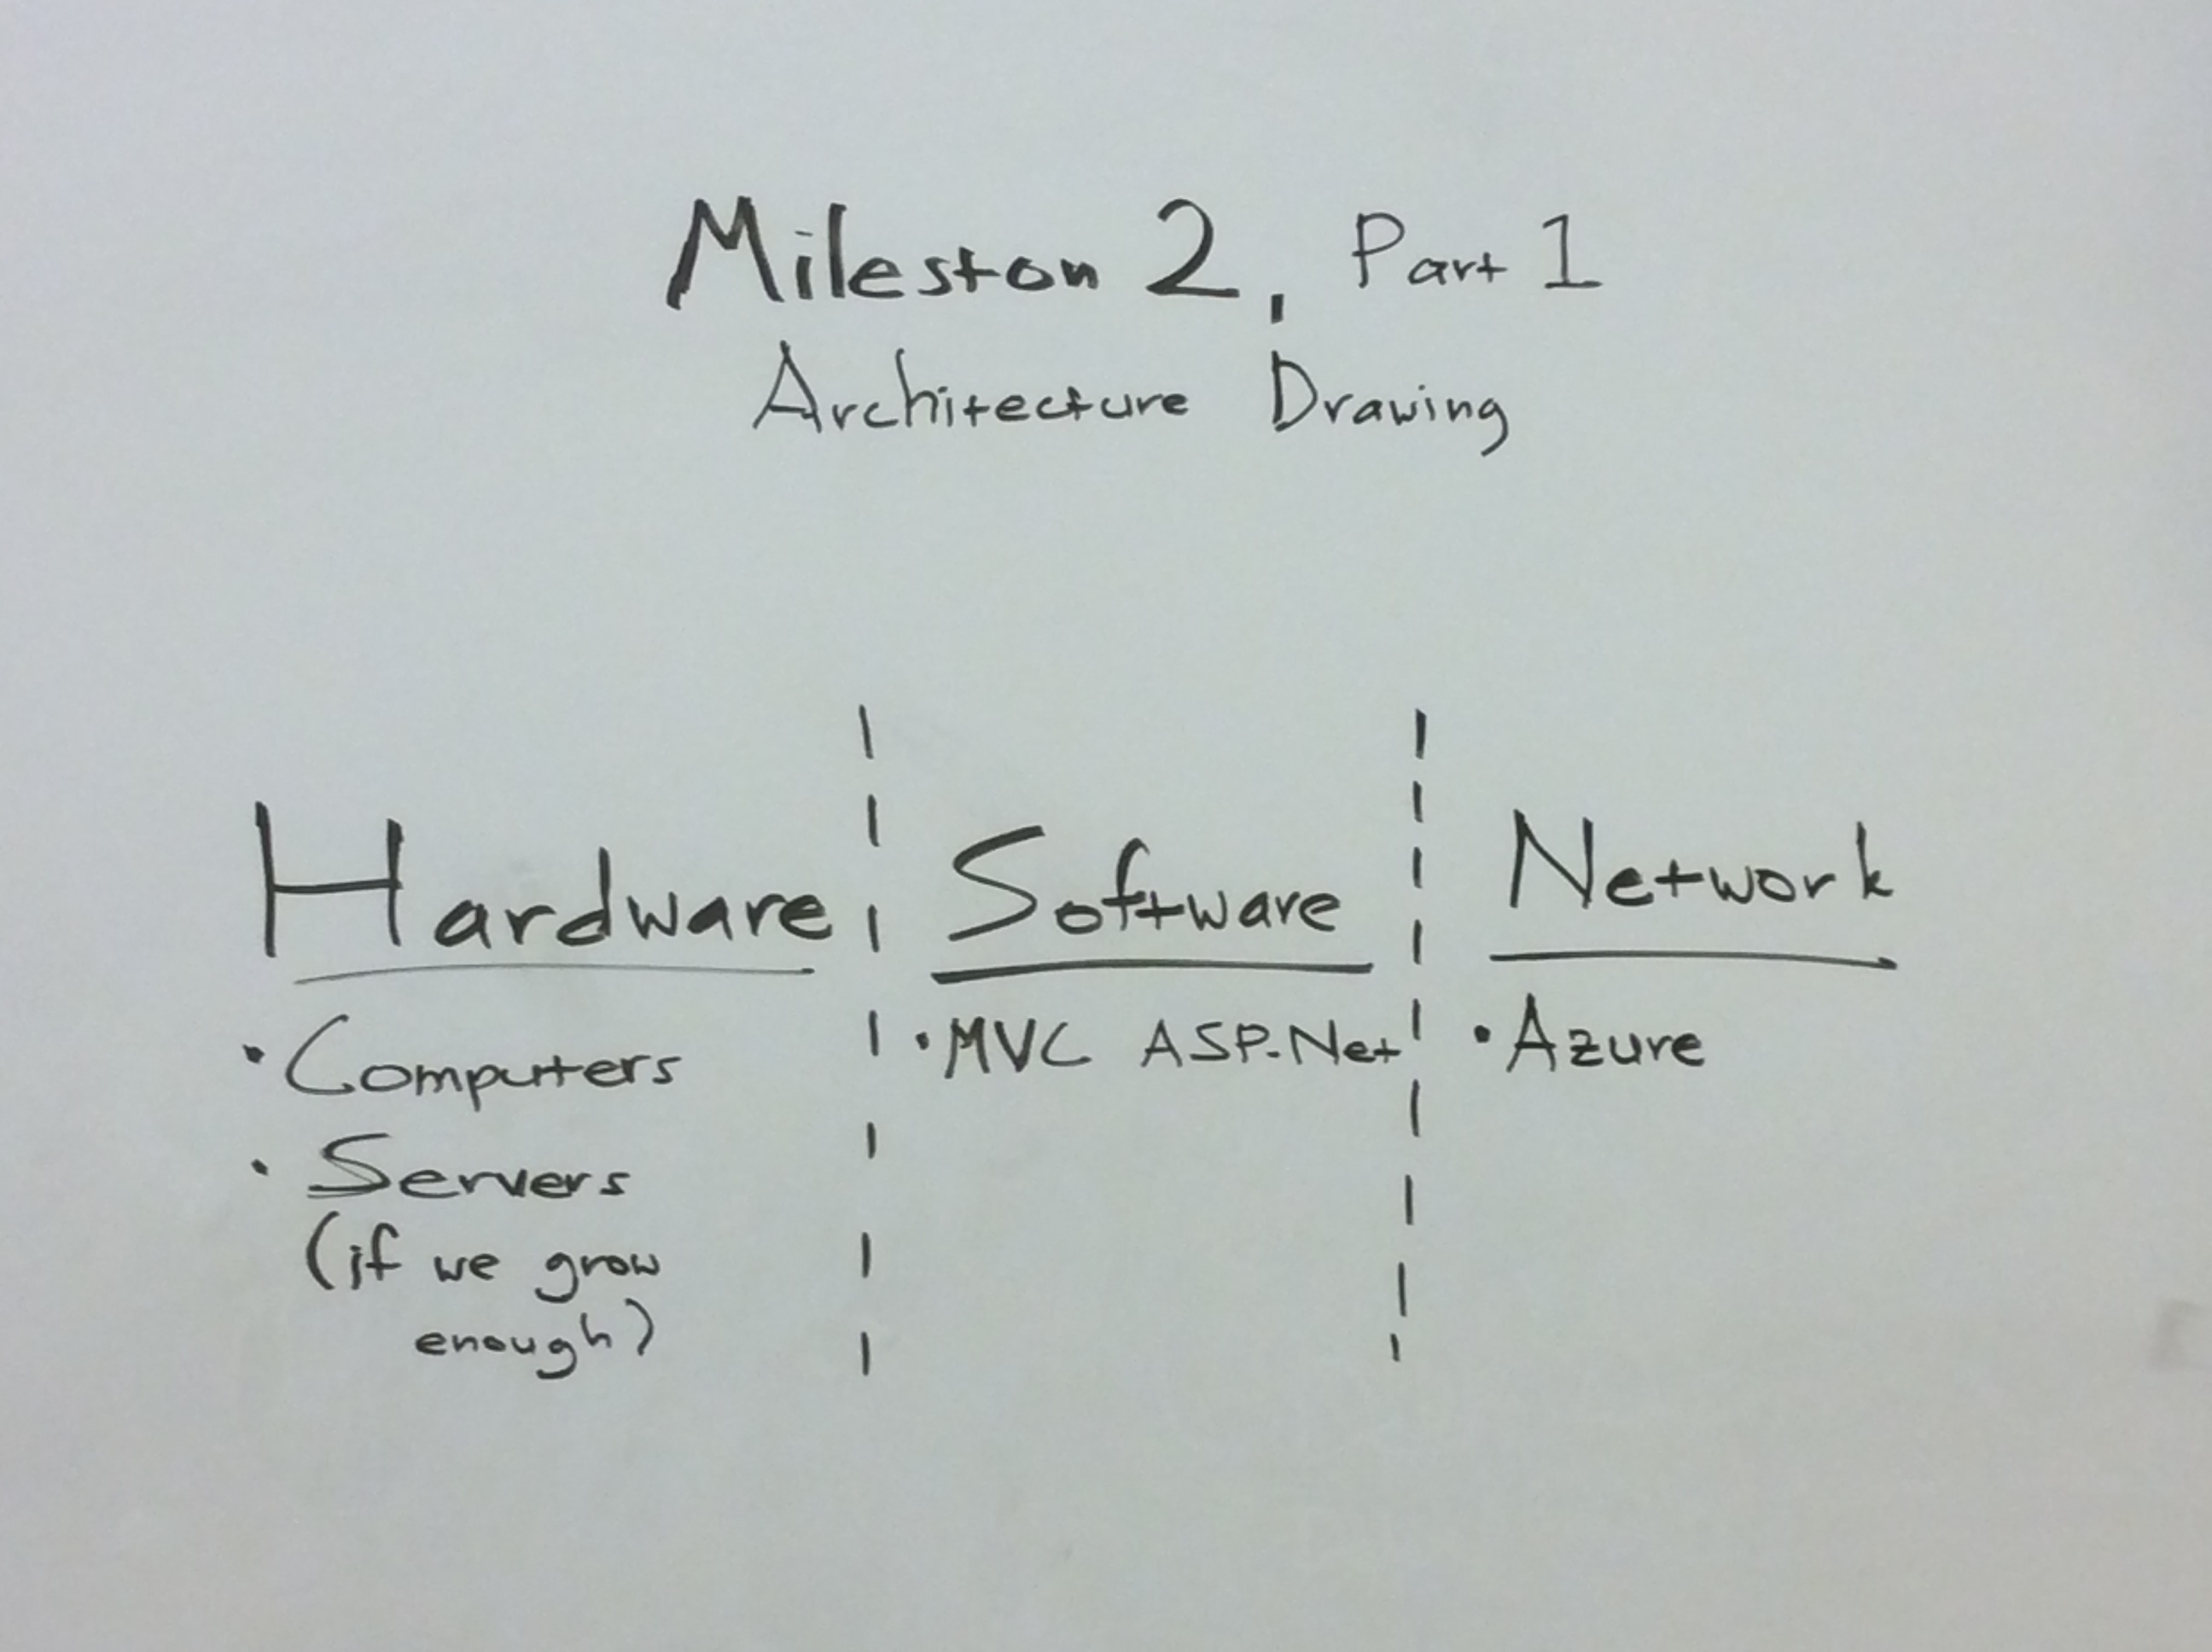 Mileston 2, Part 1
Architecture Drawing
Hardware
• Computers
• Servers
(if we grow
enough)
Software
• MVC ASP.Net
Network
• Azure